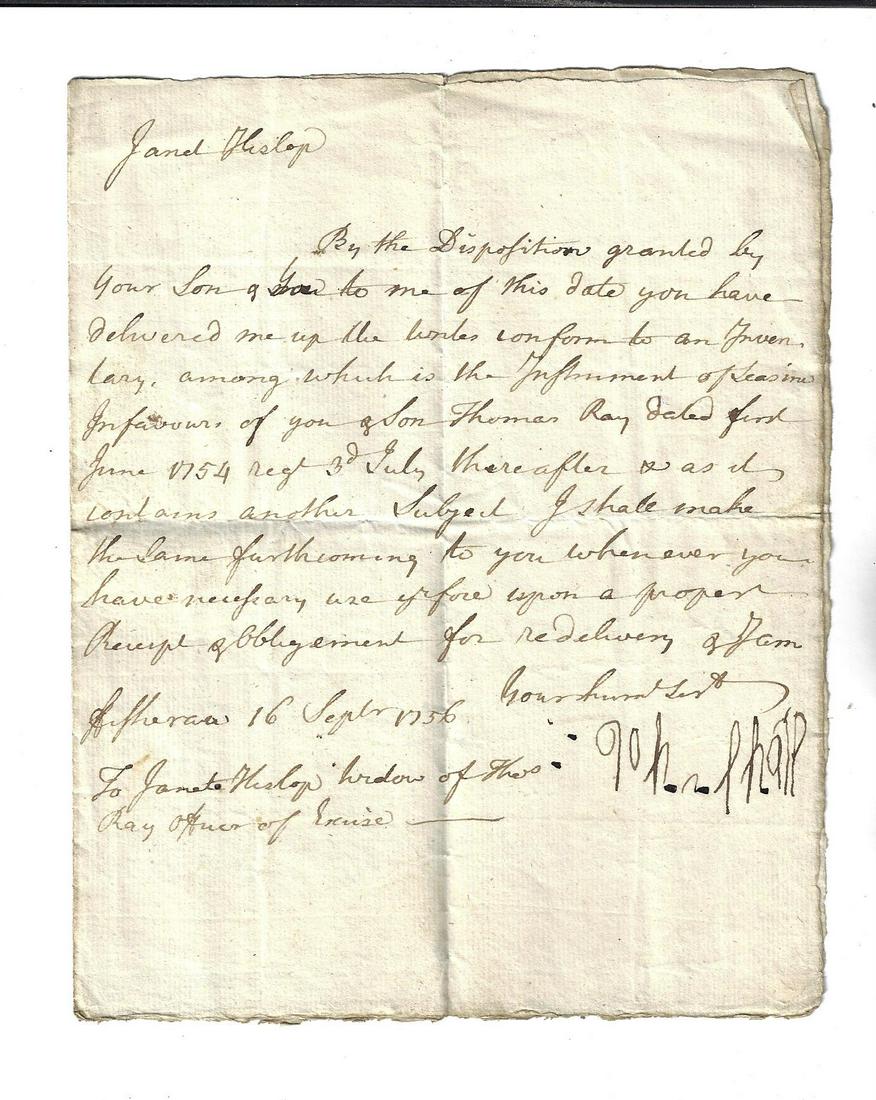 Janet Hislop
By the Disposition granted by
Your Son & You to me of this date you have
delivered me up the writes conform to an Inven
tary, among which is the Instrument of Seasine
Infavours of you & Son Thomas Ray dated first
June 1754 regt 3d July thereafter & as it
contains another Subject I shall make
the Same furthcoming to you whenever you
have necessary use yrfore upon a proper
Receipt & Obligement for redelivery & I am
Your huml Servt
16 Septr 1756
To Janet Hislop Widow of Thos
Ray Officer of Excise